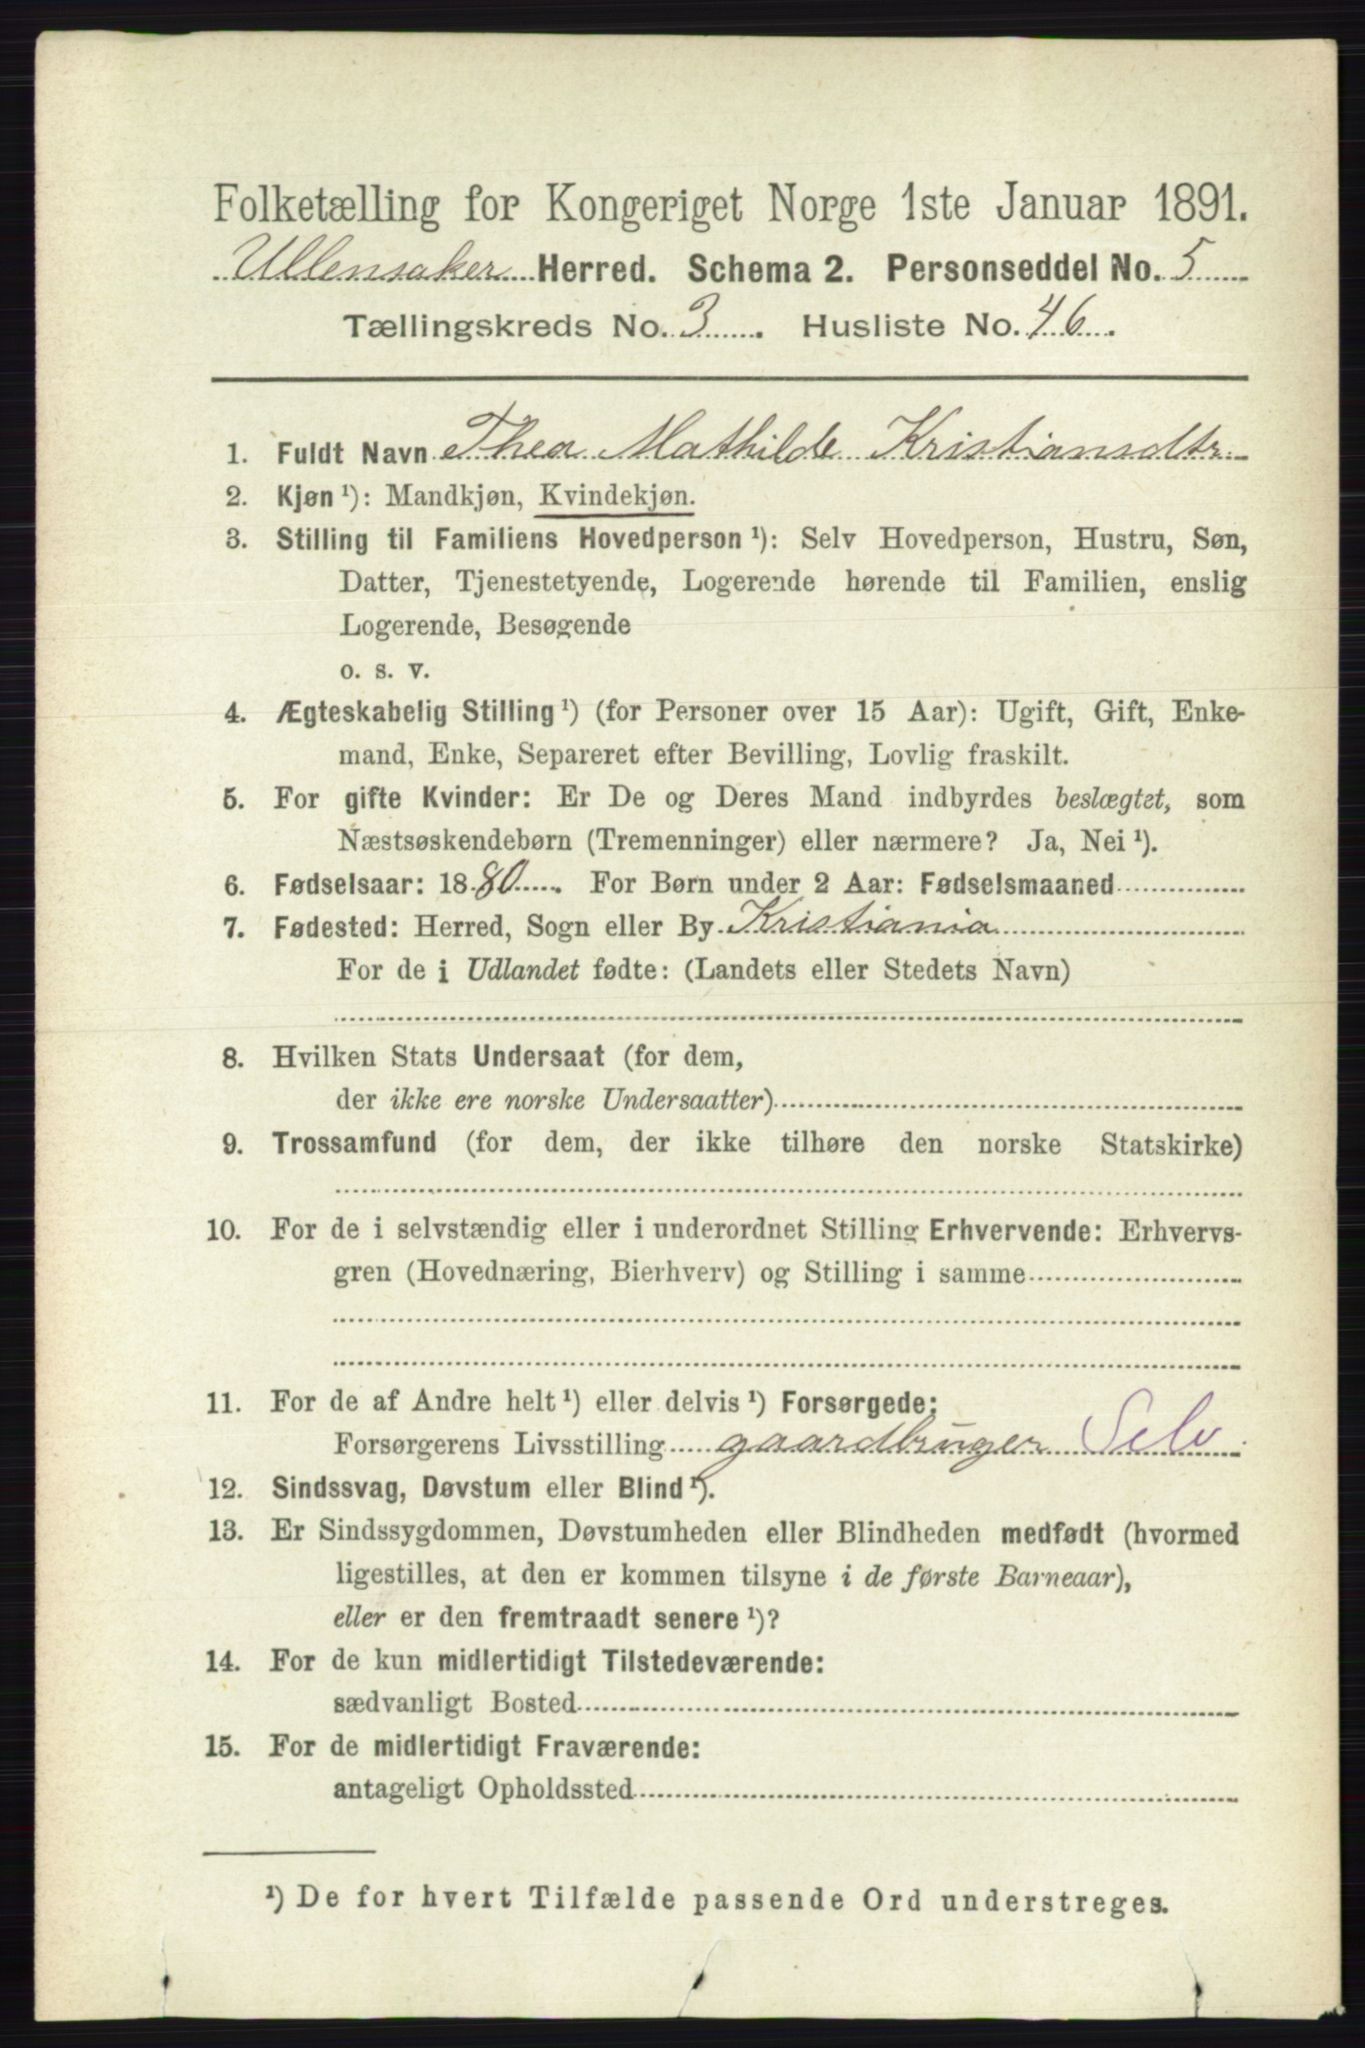 Folketælling for Kongeriget Norge 1ste Januar 1891.
Ullensaker Herred. Schema 2. Personseddel No. 5
Tællingskreds No. 3. Husliste No. 46.
1. Fuldt Navn Thea Mathilde Kristiansdtr.
2. Kjøn ¹): Mandkjøn, Kvindekjøn.
3. Stilling til Familiens Hovedperson ¹): Selv Hovedperson, Hustru, Søn,
Datter, Tjenestetyende, Logerende hørende til Familien, enslig
Logerende, Besøgende
o. s. v.
4. Ægteskabelig Stilling ¹) (for Personer over 15 Aar): Ugift, Gift, Enke-
mand, Enke, Separeret efter Bevilling, Lovlig fraskilt.
5. For gifte Kvinder: Er De og Deres Mand indbyrdes beslægtet, som
Næstsøskendebørn (Tremenninger) eller nærmere? Ja, Nei ¹).
6. Fødselsaar: 1880. For Børn under 2 Aar: Fødselsmaaned
7. Fødested: Herred, Sogn eller By Kristiania
For de i Udlandet fødte: (Landets eller Stedets Navn)
8. Hvilken Stats Undersaat (for dem,
der ikke ere norske Undersaatter)
9. Trossamfund (for dem, der ikke tilhøre den norske Statskirke)
10. For de i selvstændig eller i underordnet Stilling Erhvervende: Erhvervs-
gren (Hovednæring, Bierhverv) og Stilling i samme
11. For de af Andre helt ¹) eller delvis ¹) Forsørgede:
Forsørgerens Livsstilling gaardbruger Selv
12. Sindssvag, Døvstum eller Blind ¹).
13. Er Sindssygdommen, Døvstumheden eller Blindheden medfødt (hvormed
ligestilles, at den er kommen tilsyne i de første Barneaar),
eller er den fremtraadt senere ¹)?
14. For de kun midlertidigt Tilstedeværende:
sædvanligt Bosted
15. For de midlertidigt Fraværende:
antageligt Opholdssted
¹) De for hvert Tilfælde passende Ord understreges.